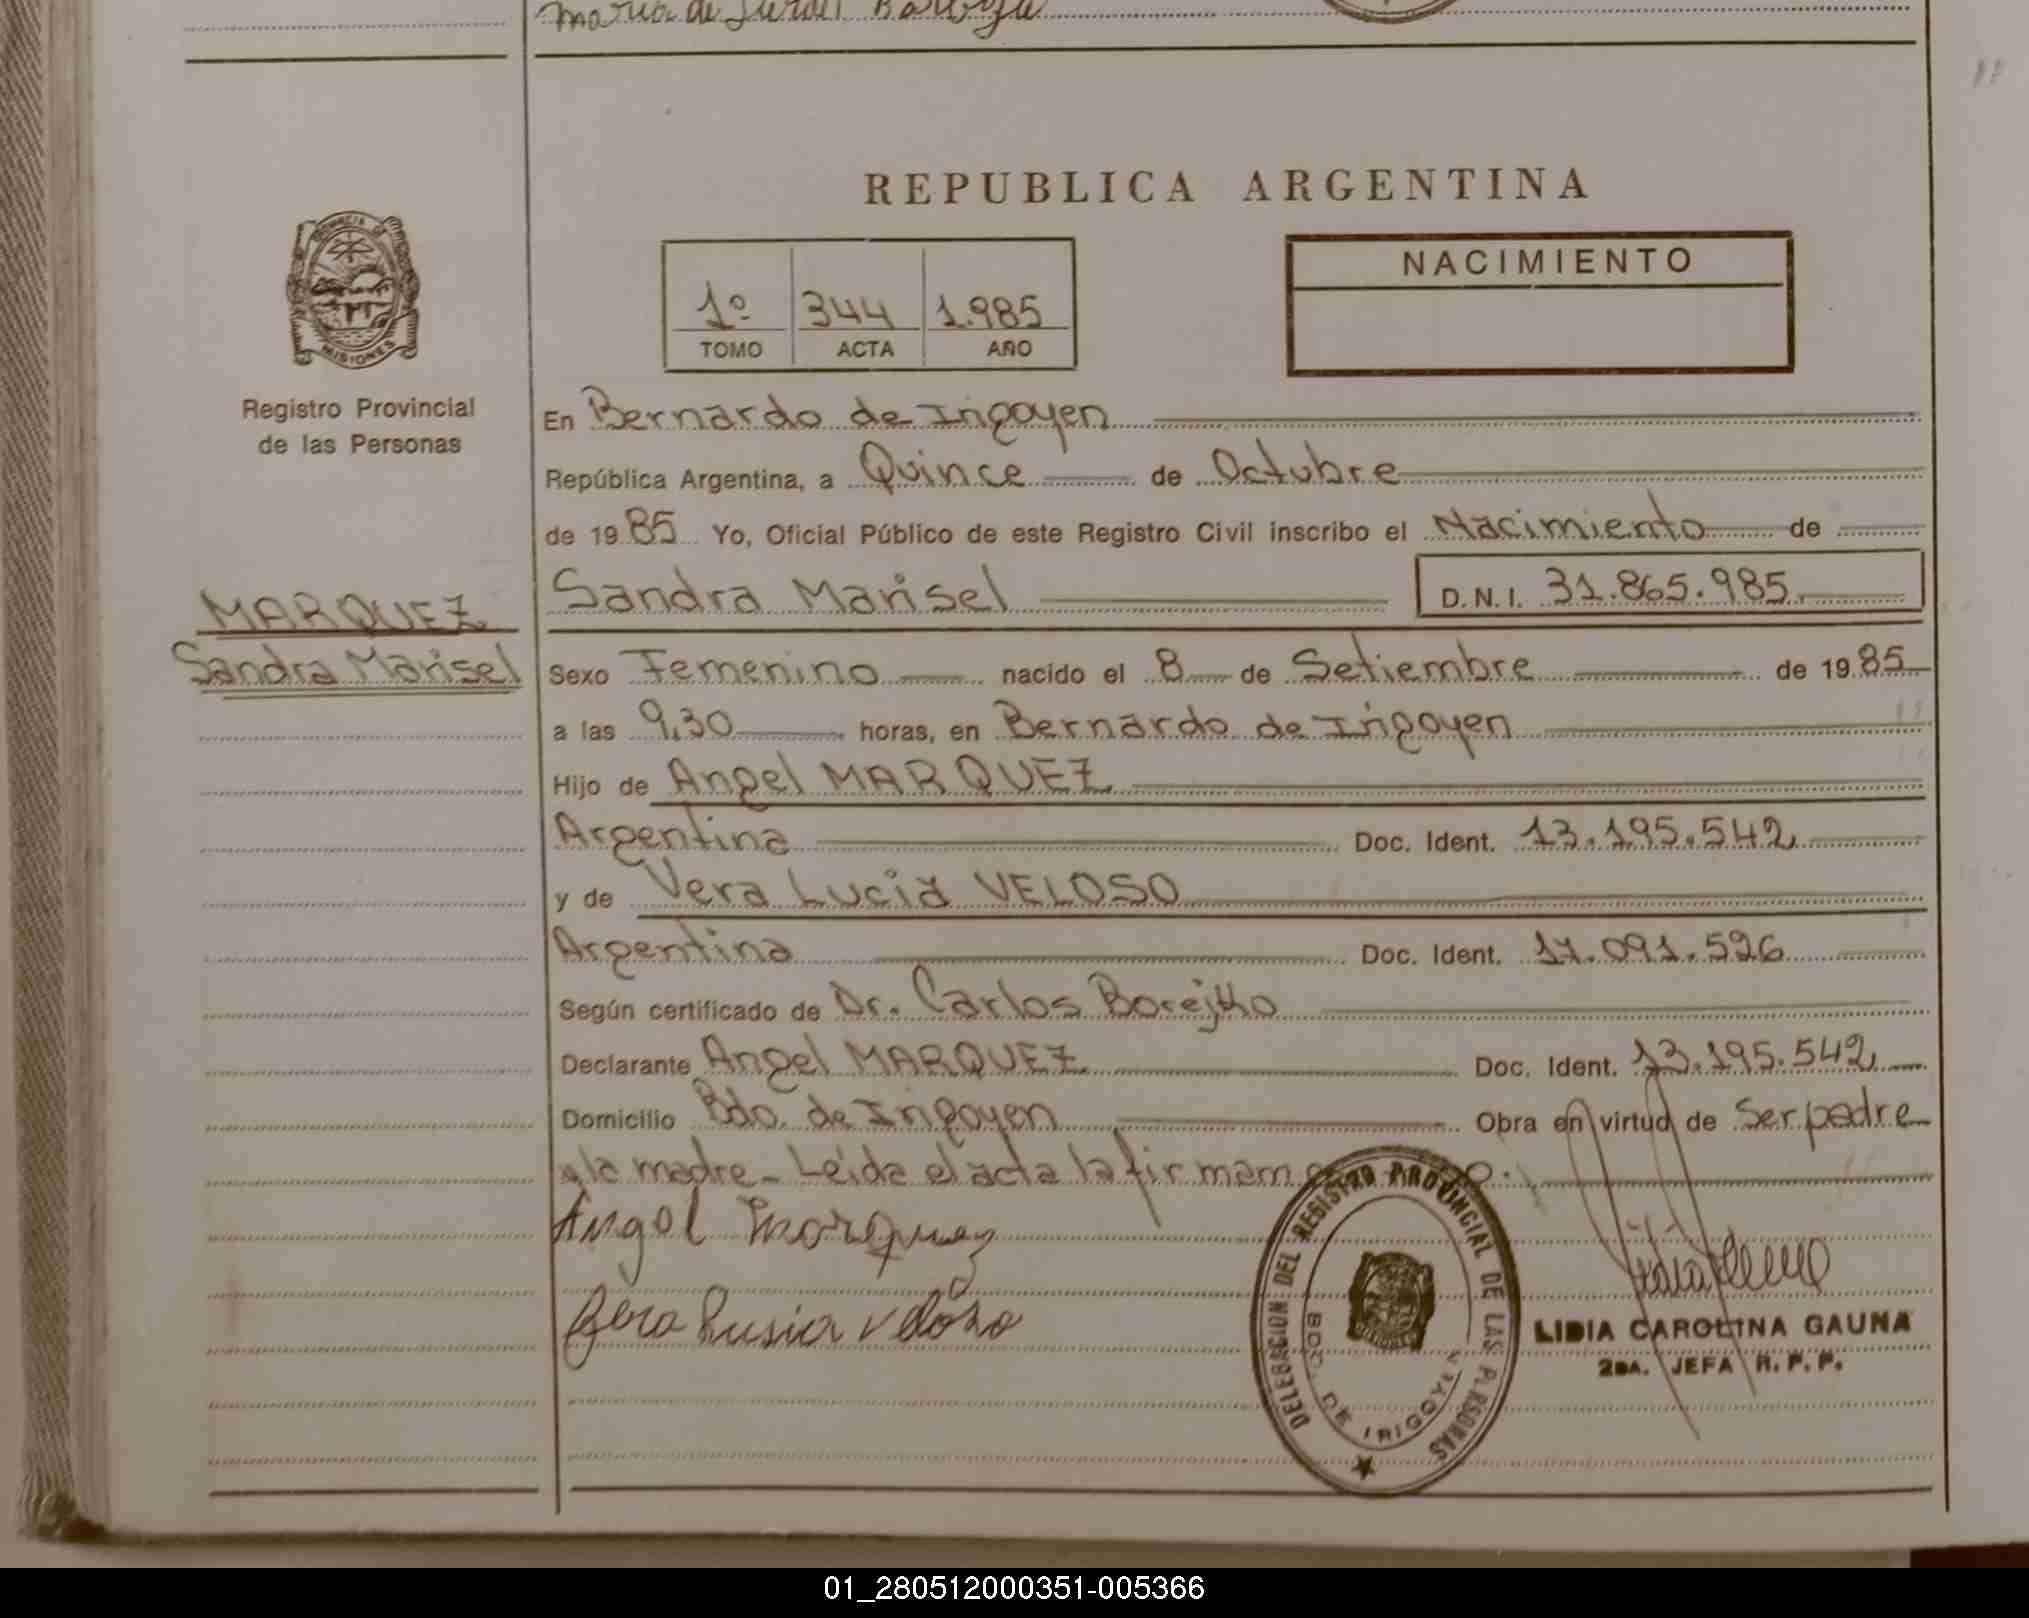 Maria de
REPUBLICA ARGENTINA
PROVINCIA DE
MISIONES
Registro Provincial
de las Personas
1º 344 1.985
TOMO ACTA AÑO
NACIMIENTO
En Bernardo de Irigoyen
República Argentina, a Quince de Octubre
de 19 85 Yo, Oficial Público de este Registro Civil inscribo el Nacimiento de
MARQUEZ
Sandra Marisel
Sandra Marisel D.N.I. 31.865.985.
Sexo Femenino nacido el 8 de Setiembre de 19 85
a las 9,30 horas, en Bernardo de Irigoyen
Hijo de Angel MARQUEZ
Argentina Doc. Ident. 13.195.542
y de Vera Lucia VELOSO
Argentina Doc. Ident. 17.091.526
Según certificado de Dr. Carlos Borejko
Declarante Angel MARQUEZ Doc. Ident. 13.195.542
Domicilio Bdo. de Irigoyen Obra en virtud de Ser padre
y la madre - Leida el acta la firman
Angel Marquez
Bera Lusia Veloso
DELEGACION DEL REGISTRO PROVINCIAL DE LAS PERSONAS
BDO. DE IRIGOYEN
LIDIA CAROLINA GAUNA
2DA. JEFA R. P. P.
01_280512000351-005366